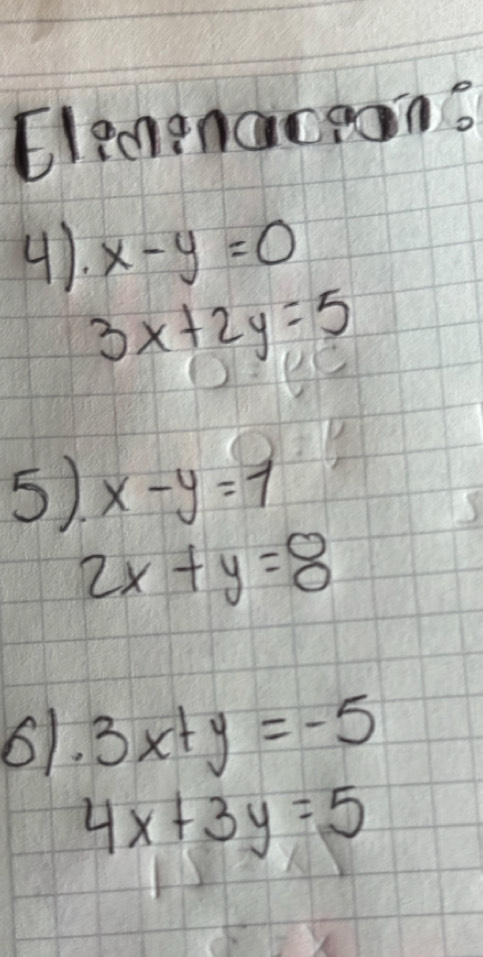 Eliminacion:
4). x - y = 0
3x + 2y = 5
5). x - y = 1
2x + y = 8
6). 3x + y = -5
4x + 3y = 5